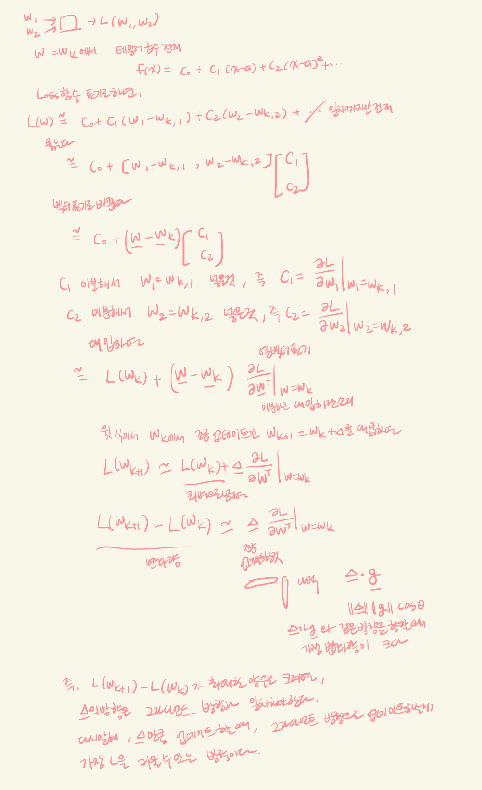 w₁
w₂ → □ → L(w₁, w₂)
w = wₖ에서 테일러 급수 전개
f(x) = c₀ + c₁(x-a) + c₂(x-a)²+...
Loss함수 표기로하면,
L(w) ≅ c₀ + c₁(w₁-wₖ,₁) + c₂(w₂-wₖ,₂) + 일차까지만 전개
≅ c₀ + [w₁-wₖ,₁, w₂-wₖ,₂] [c₁ c₂]
벡터표기로 바꾸면
≅ c₀ + (w-wₖ) [c₁ c₂]
c₁ 미분해서 w₁=wₖ,₁ 넣은것, 즉 c₁ = ∂L/∂w₁ | w₁=wₖ,₁
c₂ 미분해서 w₂=wₖ,₂ 넣은것, 즉 c₂ = ∂L/∂w₂ | w₂=wₖ,₂
대입하면
열벡터표기
≅ L(wₖ) + (w-wₖ) ∂L/∂wᵀ | w=wₖ
미분하고 대입
윗 식에서 wₖ에서 업데이트한 wₖ₊₁ = wₖ+Δ를 대입하면
L(wₖ₊₁) ≃ L(wₖ) + Δ ∂L/∂wᵀ | w=wₖ
L(wₖ₊₁) - L(wₖ) ≃ Δ ∂L/∂wᵀ | w=wₖ
변화량
Δ·g
||Δ|| ||g|| cosθ
Δ가 g와 같은방향을 향할때
가장 변화량이 크다
즉, L(wₖ₊₁) - L(wₖ)가 최대한 양수로 크려면,
Δ의방향은 그래디언트 방향과 일치해야한다.
다시말해, Δ만큼 업데이트할때, 그래디언트 방향으로 업데이트하는게
가장 L을 키울수있는 방향이다.